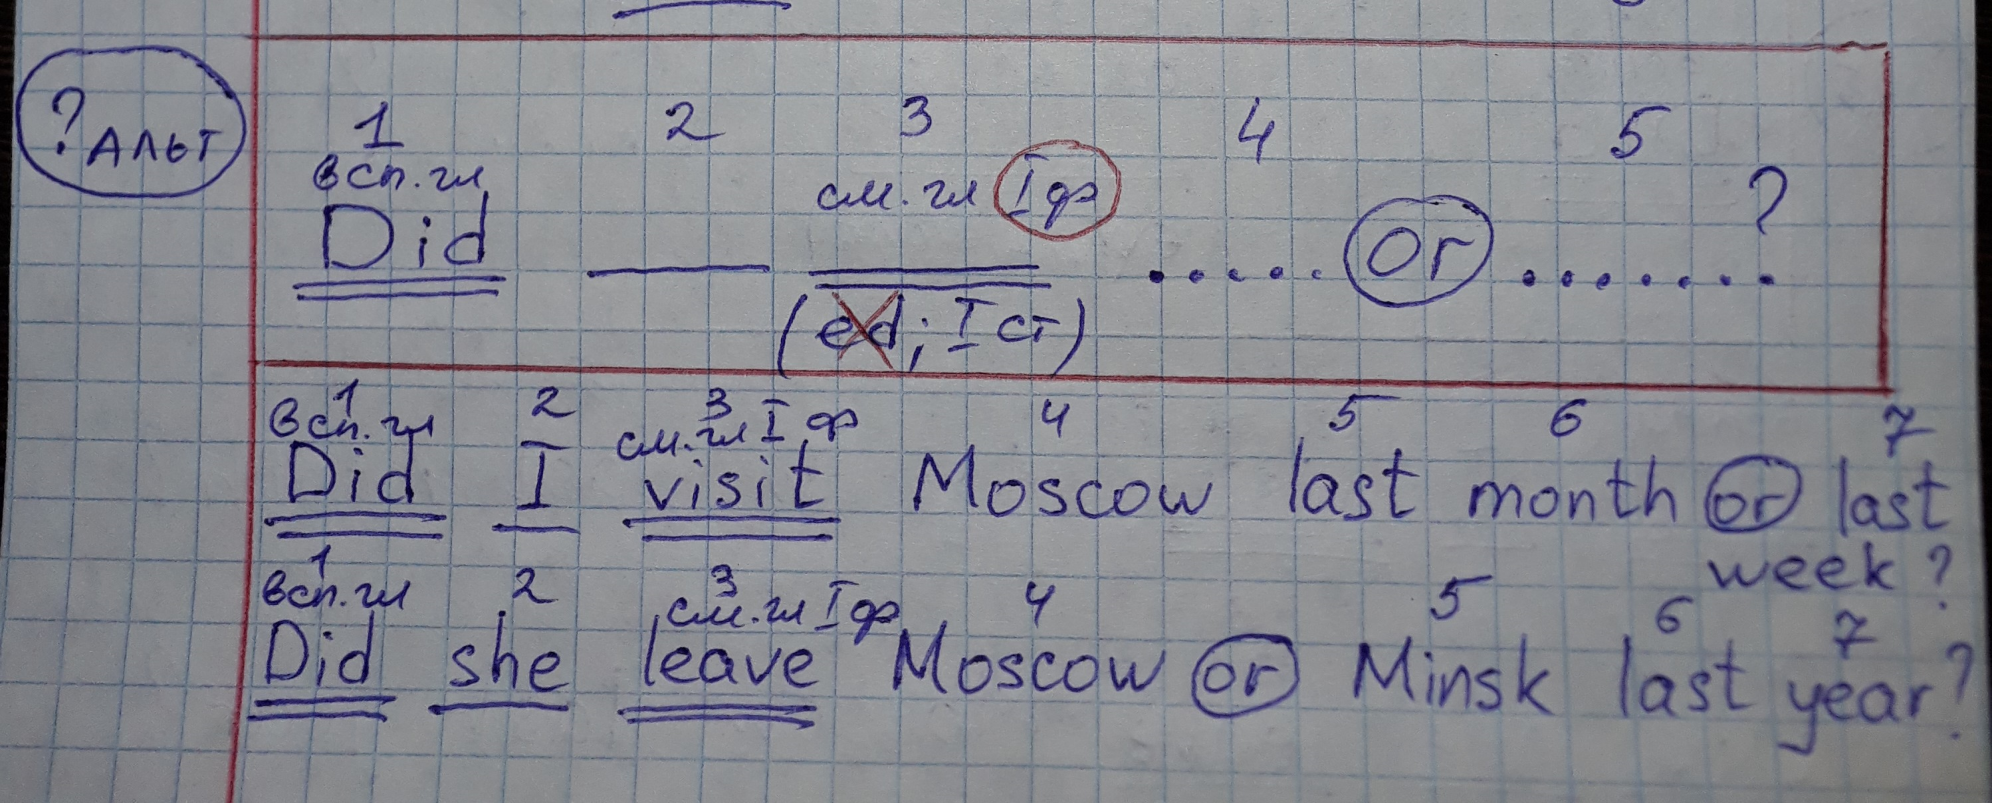 ? АЛЬТ
1 2 3 4 5
всп. гл см. гл I ф
Did ..... or ....... ?
(ed; I ст)
1 2 3 4 5 6 7
всп. гл см. гл I ф
Did I visit Moscow last month or last
week ?
1 2 3 4 5 6 7
всп. гл см. гл I ф
Did she leave Moscow or Minsk last year?